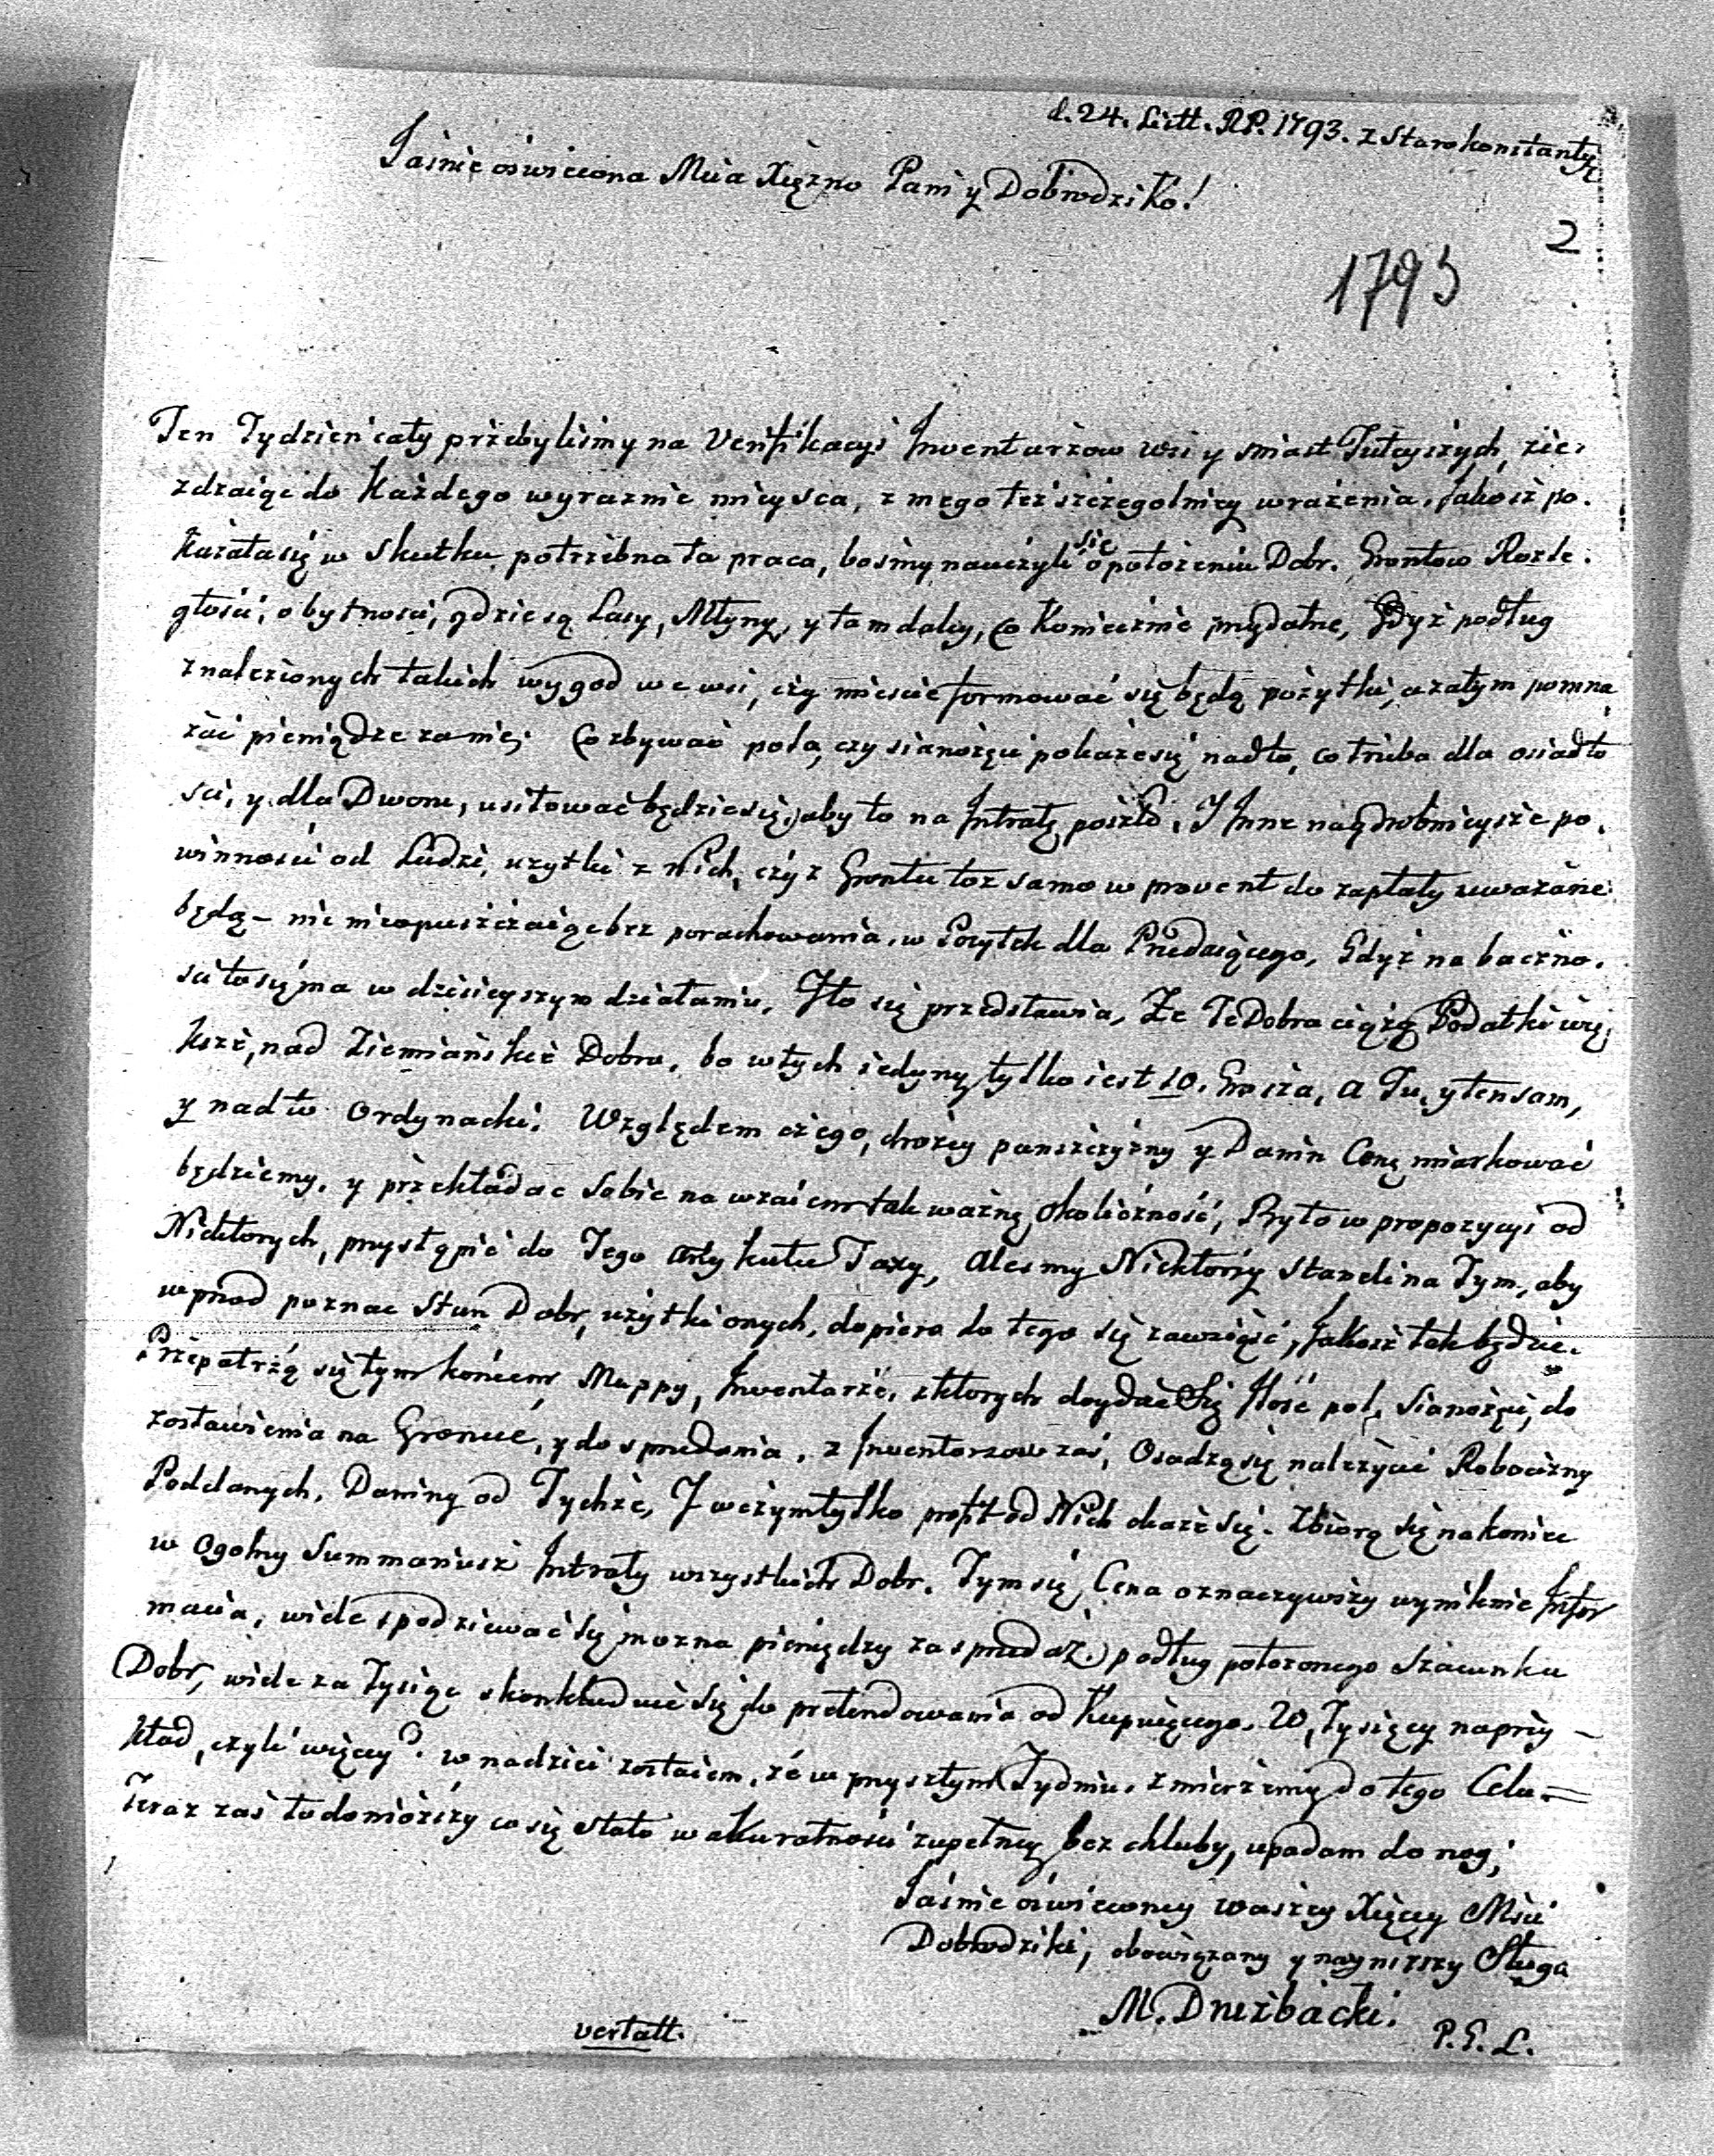 d. 24. Litt. RP. 1793. z Starokonstanty
Jaśnie oświecona Mcia Xięzno Pani y Dobrodziko!
2
1793
Ten Tydzień cały przebyliśmy na Verifikacyi Inwentarzow wsi y miast Tuteyszych, zie-
zdzaiąc do Każdego wyraznie mieysca, z mego też szczegolniey wrażenia. Jakosz po-
kazała się w skutku potrzebna ta praca, bosmy nauczyli się o położeniu Dobr. Grontow Rozle-
głości, obytności, gdzie są Lasy, Młyny, y tam daley, co Koniecznie przydatne, Gdyż podług
znalezionych takich wygod we wsi, czy mieście formować się będą pożytki, a zatym pomna
żać pieniądze za nie; Co zbywać pola, czy sianożęci pokaże się nadto, co trzeba dla osiadło
sci, y dla Dworu, usiłować będzie się, aby to na Intratę poszło. Y Inne naydrobnieysze po-
winności od Ludzi, uzytki z Nich, czy z Grontu toż samo w prowent do zapłaty uważane
będą – nic nieopuszczaiąc bez porachowania, w Pożytek dla Przedaiącego, Gdyż na baczno-
sci to się ma w dzisieyszym działaniu. Y to się przedstawia, Ze Te Dobra ciążą Podatki wię-
ksze, nad Ziemiańskie Dobra, bo w tych iedyny tylko iest 10. Grosza, a Tu, y ten sam,
y nadto Ordynacki. Względem czego, drożey panszczyzny y Danin Cenę miarkować
będziemy, y przekładac sobie na wzaiem tak ważną okoliczność, Było w propozycyi od
Niektorych, przystąpić do Tego artykułu Taxy, ale my Niektorzy staneli na Tym, aby
wprzod poznac Stan Dobr, użytki onych, dopiero do tego się zawziąść, Jakosz tak będzie.
Przepatrzą się tym końcem Mappy, Inwentarze, z ktorych doydzie się Ilość pol, Sianożęci, do
zostawienia na Groncie, y do sprzedania, z Inwentarzow zaś, Osadzą się należycie Robocizny
Poddanych, Daniny od Tychże, Y w czym tylko profit od Nich okaże się. Zbiorą się nakoniec
w Ogolny Summariusz Intraty wszystkich Dobr. Tym się Cena oznaczywszy wyniknie Infor
macia, wiele spodziewać się można pieniędzy za sprzedaż podług położonego Szacunku
Dobr, wiele za Tysiąc skonkluduie się do pretendowania od Kupuiącego. 20, Tysięcy naprzy-
kład, czyli więcey? w nadziei zostaiem, że w przyszłym Tydniu, zmierzemy do tego Celu. =
Teraz zaś to doniosszy co się stało w akuratności zupełney bez chluby, upadam do nog;
Jaśnie oświeconey Waszey Xięcey Mści
Dobrodziki, obowiązany y nayniższy Sługa
M. Drużbacki.
P. G. L.
vertatt.